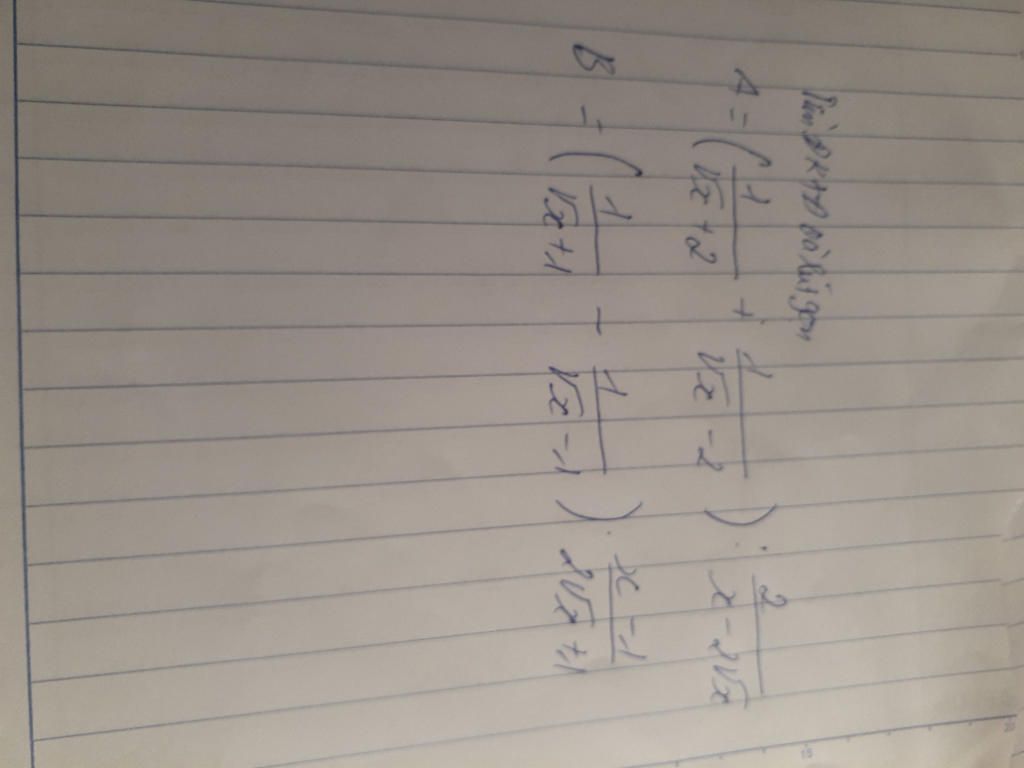 Tìm ĐKXĐ và rút gọn
A = (\frac{1}{\sqrt{x}+2} + \frac{1}{\sqrt{x}-2}) : \frac{2}{x-2\sqrt{x}}
B = (\frac{1}{\sqrt{x}+1} - \frac{1}{\sqrt{x}-1}) . \frac{x-1}{2\sqrt{x}+1}